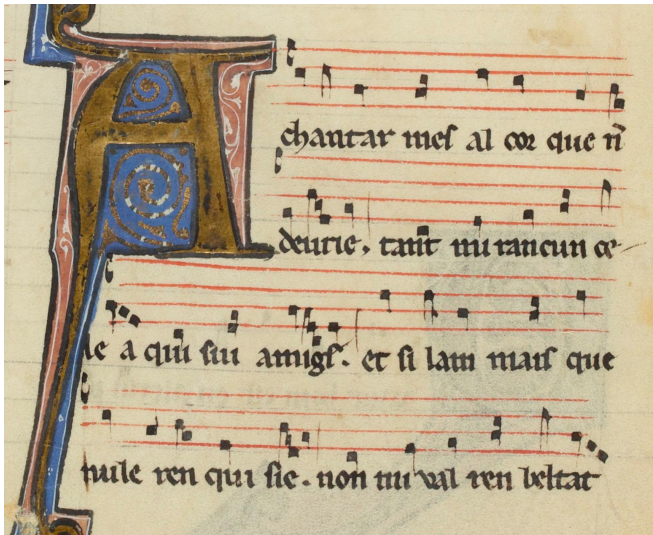 A chantar mes al cor que ñ
deurie. tant mi rancun ce-
le a qui sui amigs. et si lam mais que
nule ren qui sie. non mi val ren beltat